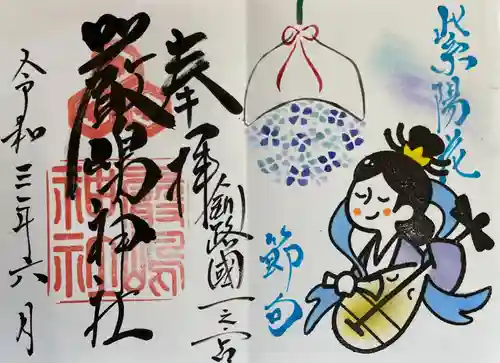 紫陽花
節句
奉拝
釧路國一之宮
厳嶋神社
令和三年六月